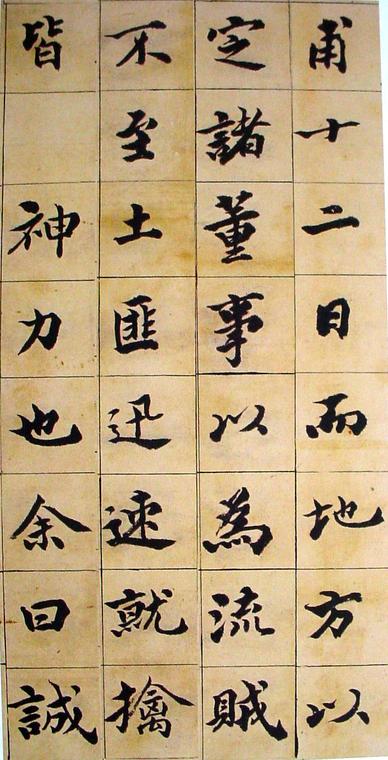 甫十二日而地方以
定諸董事以為流賊
不至土匪迅速就擒
皆神力也余曰誠